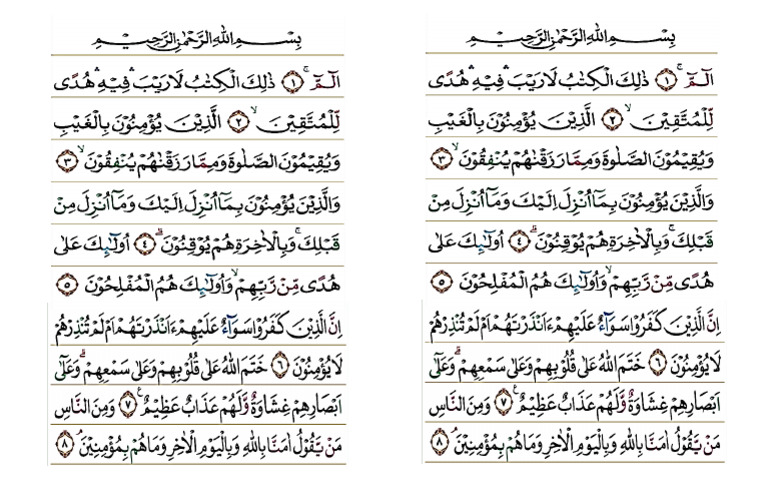 بِسْمِ اللهِ الرَّحْمٰنِ الرَّحِيْمِ
الٓمّٓ ۚ ﴿١﴾ ذٰلِكَ الْكِتٰبُ لَا رَيْبَ ۛ فِيْهِ ۛ هُدًى
لِّلْمُتَّقِيْنَ ۙ ﴿٢﴾ الَّذِيْنَ يُؤْمِنُوْنَ بِالْغَيْبِ
وَيُقِيْمُوْنَ الصَّلٰوةَ وَمِمَّا رَزَقْنٰهُمْ يُنْفِقُوْنَ ۙ ﴿٣﴾
وَالَّذِيْنَ يُؤْمِنُوْنَ بِمَآ اُنْزِلَ اِلَيْكَ وَمَآ اُنْزِلَ مِنْ
قَبْلِكَ ۚ وَبِالْاٰخِرَةِ هُمْ يُوْقِنُوْنَ ۗ ﴿٤﴾ اُولٰٓئِكَ عَلٰى
هُدًى مِّنْ رَّبِّهِمْ ۙ وَاُولٰٓئِكَ هُمُ الْمُفْلِحُوْنَ ﴿٥﴾
اِنَّ الَّذِيْنَ كَفَرُوْا سَوَآءٌ عَلَيْهِمْ ءَاَنْذَرْتَهُمْ اَمْ لَمْ تُنْذِرْهُمْ
لَا يُؤْمِنُوْنَ ﴿٦﴾ خَتَمَ اللهُ عَلٰى قُلُوْبِهِمْ وَعَلٰى سَمْعِهِمْ ۗ وَعَلٰٓى
اَبْصَارِهِمْ غِشَاوَةٌ وَّلَهُمْ عَذَابٌ عَظِيْمٌ ࣖ ﴿٧﴾ وَمِنَ النَّاسِ
مَنْ يَّقُوْلُ اٰمَنَّا بِاللهِ وَبِالْيَوْمِ الْاٰخِرِ وَمَا هُمْ بِمُؤْمِنِيْنَ ۘ ﴿٨﴾
بِسْمِ اللهِ الرَّحْمٰنِ الرَّحِيْمِ
الٓمّٓ ۚ ﴿١﴾ ذٰلِكَ الْكِتٰبُ لَا رَيْبَ ۛ فِيْهِ ۛ هُدًى
لِّلْمُتَّقِيْنَ ۙ ﴿٢﴾ الَّذِيْنَ يُؤْمِنُوْنَ بِالْغَيْبِ
وَيُقِيْمُوْنَ الصَّلٰوةَ وَمِمَّا رَزَقْنٰهُمْ يُنْفِقُوْنَ ۙ ﴿٣﴾
وَالَّذِيْنَ يُؤْمِنُوْنَ بِمَآ اُنْزِلَ اِلَيْكَ وَمَآ اُنْزِلَ مِنْ
قَبْلِكَ ۚ وَبِالْاٰخِرَةِ هُمْ يُوْقِنُوْنَ ۗ ﴿٤﴾ اُولٰٓئِكَ عَلٰى
هُدًى مِّنْ رَّبِّهِمْ ۙ وَاُولٰٓئِكَ هُمُ الْمُفْلِحُوْنَ ﴿٥﴾
اِنَّ الَّذِيْنَ كَفَرُوْا سَوَآءٌ عَلَيْهِمْ ءَاَنْذَرْتَهُمْ اَمْ لَمْ تُنْذِرْهُمْ
لَا يُؤْمِنُوْنَ ﴿٦﴾ خَتَمَ اللهُ عَلٰى قُلُوْبِهِمْ وَعَلٰى سَمْعِهِمْ ۗ وَعَلٰٓى
اَبْصَارِهِمْ غِشَاوَةٌ وَّلَهُمْ عَذَابٌ عَظِيْمٌ ࣖ ﴿٧﴾ وَمِنَ النَّاسِ
مَنْ يَّقُوْلُ اٰمَنَّا بِاللهِ وَبِالْيَوْمِ الْاٰخِرِ وَمَا هُمْ بِمُؤْمِنِيْنَ ۘ ﴿٨﴾